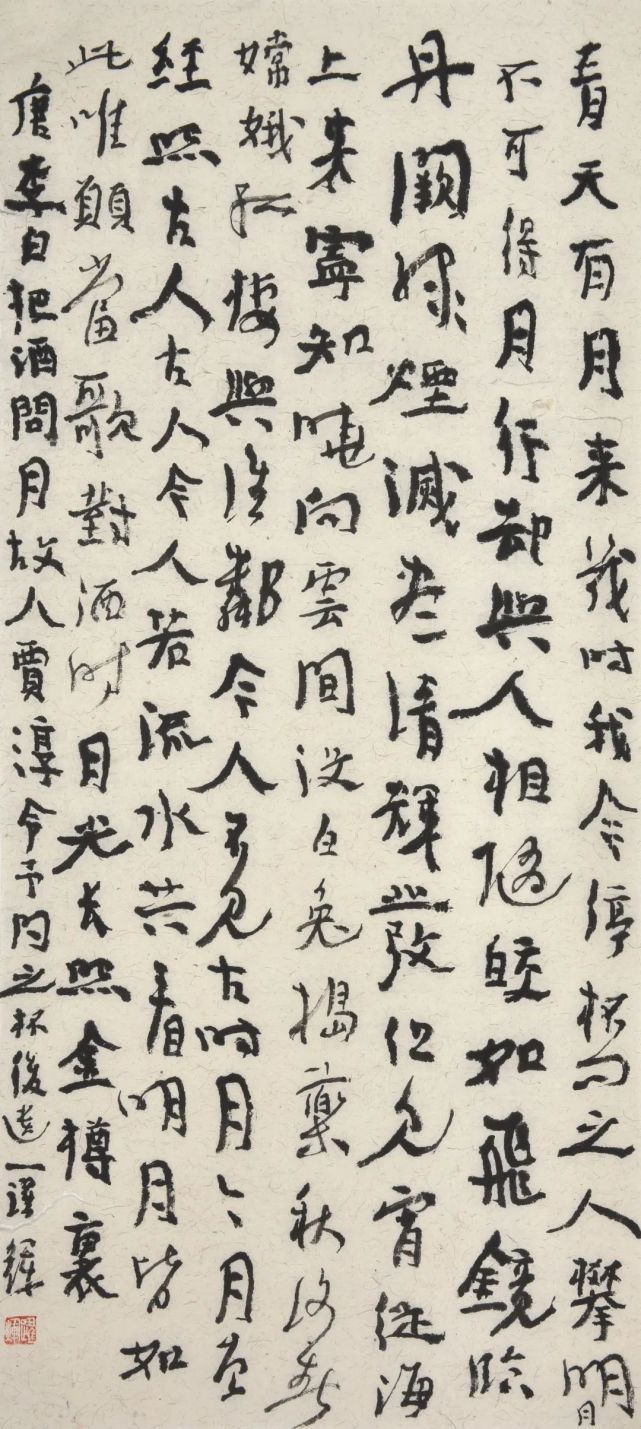 青天有月来幾时我今停杯问之人攀明月
不可得月行却與人相随皎如飛鏡臨
丹闕绿煙滅盡清輝發但见宵從海
上来寧知曉向雲間没白兔搗藥秋復春
嫦娥孤棲與谁鄰今人不见古时月今月曾
經照古人古人今人若流水共看明月皆如
此唯願當歌對酒时月光长照金樽裏
唐李白把酒問月故人賈淳令予问之杯後